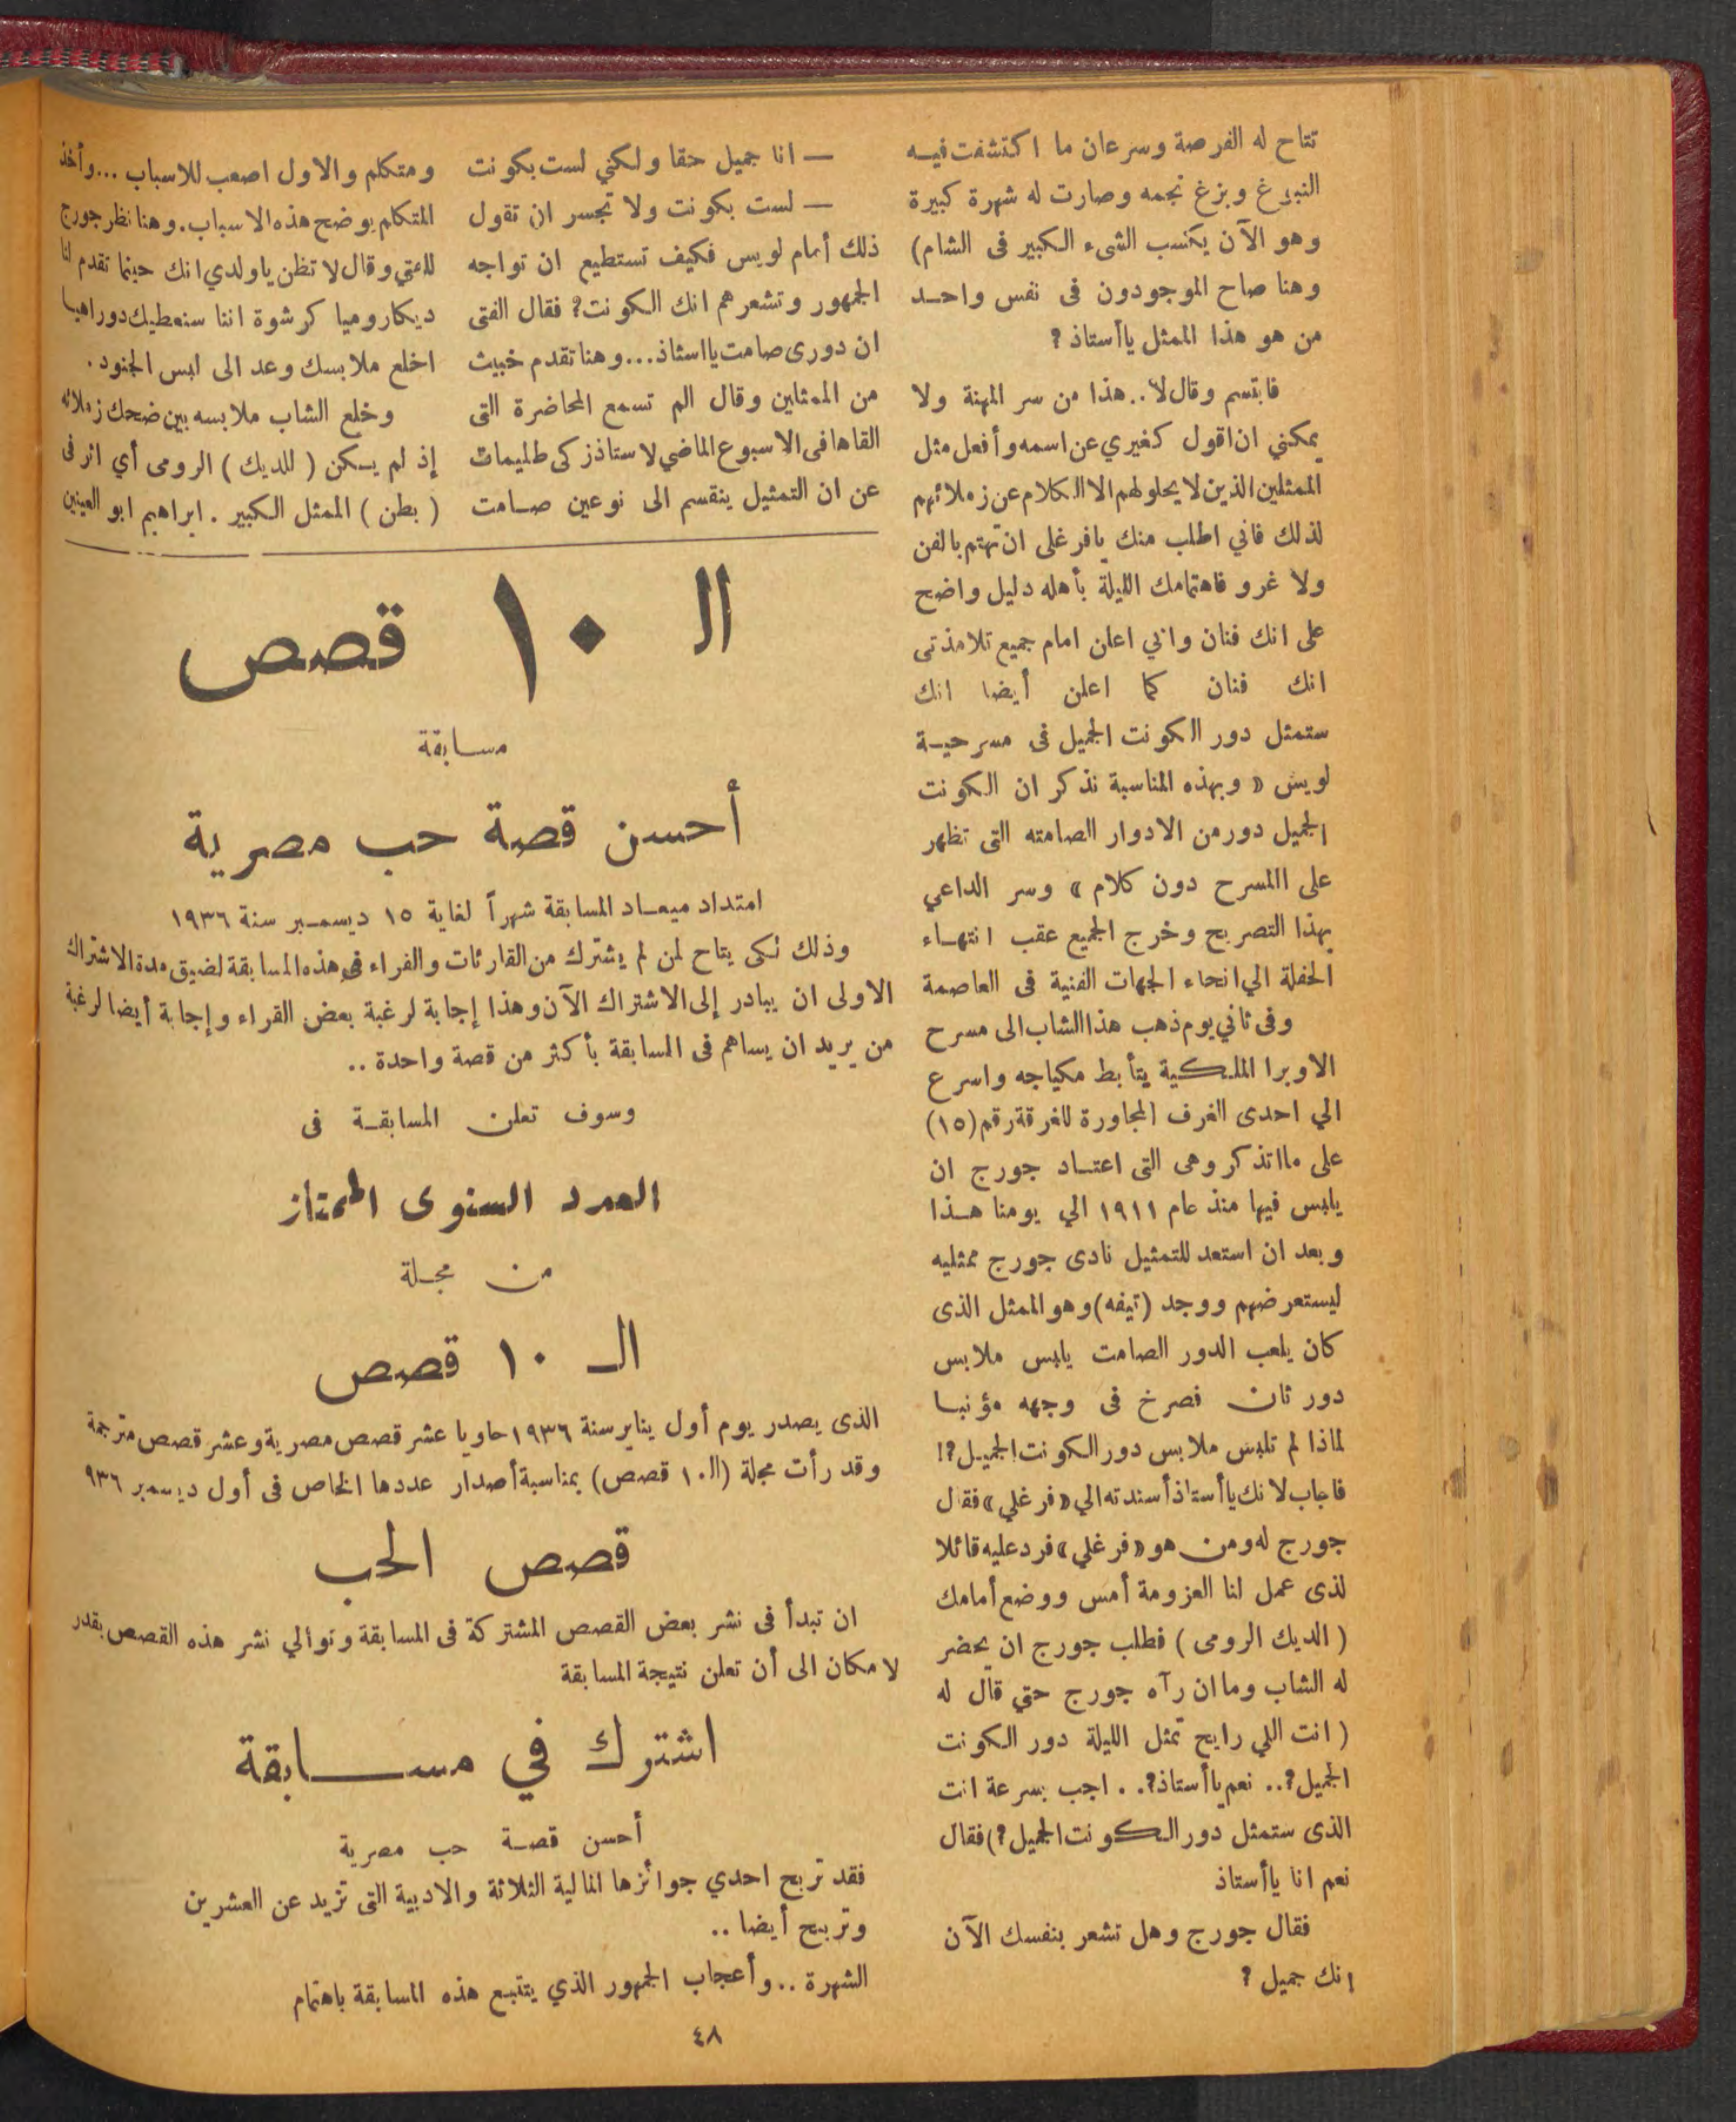 تتاح له الفرصة وسرعان ما اكتشفت فيه
النبوغ وبزغ نجمه وصارت له شهرة كبيرة
وهو الآن يكسب الشىء الكبير فى الشام)
وهنا صاح الموجودون فى نفس واحد
من هو هذا الممثل ياأستاذ ؟
فابتسم وقال لا.. هذا من سر المهنة ولا
يمكنني ان اقول كغيري عن اسمه وأفعل مثل
الممثلين الذين لا يحلو لهم الا الكلام عن زملائهم
لذلك فاني اطلب منك يافرغلى ان تهتم بالفن
ولا غرو فاهتمامك الليلة بأهله دليل واضح
على انك فنان واني اعلن امام جميع تلامذتى
انك فنان كما اعلن أيضا انك
ستمثل دور الكونت الجميل فى مسرحية
لويس « وبهذه المناسبة نذكر ان الكونت
الجميل دور من الادوار الصامته التى تظهر
على االمسرح دون كلام » وسر الداعي
بهذا التصريح وخرج الجميع عقب انتهاء
الحفلة الي انحاء الجهات الفنية فى العاصمة
وفى ثاني يوم ذهب هذا الشاب الى مسرح
الاوبرا الملكية يتأبط مكياجه واسرع
الي احدى الغرف المجاورة للغرقة رقم (١٥)
على ما اتذكر وهى التى اعتاد جورج ان
يلبس فيها منذ عام ١٩١١ الي يومنا هذا
وبعد ان استعد للتمثيل نادى جورج ممثليه
ليستعرضهم ووجد (تيفه) وهو الممثل الذى
كان يلعب الدور الصامت يلبس ملابس
دور ثان فصرخ فى وجهه مؤنبا
لماذا لم تلبس ملابس دور الكونت الجميل ؟!
فاجاب لانك ياأستاذ أسندته الي «فرغلي» فقال
جورج له ومن هو «فرغلي» فرد عليه قائلا
لذى عمل لنا العزومة أمس ووضع أمامك
( الديك الرومى ) فطلب جورج ان يحضر
له الشاب وما ان رآه جورج حتي قال له
( انت اللي رايح تمثل الليلة دور الكونت
الجميل ؟.. نعم ياأستاذ ؟. . اجب بسرعة انت
الذى ستمثل دور الكونت الجميل ؟) فقال
نعم انا ياأستاذ
فقال جورج وهل تشعر بنفسك الآن
انك جميل ؟
— انا جميل حقا ولكني لست بكونت
— لست بكونت ولا تجسر ان تقول
ذلك أمام لويس فكيف تستطيع ان تواجه
الجمهور وتشعرهم انك الكونت ؟ فقال الفتى
ان دورى صامت يااستاذ... وهنا تقدم خبيث
من الممثلين وقال الم تسمع المحاضرة التى
القاها فى الاسبوع الماضي لاستاذ زكى طليمات
عن ان التمثيل ينقسم الى نوعين صامت
ومتكلم والاول اصعب للاسباب ... وأخذ
المتكلم يوضح هذه الاسباب . وهنا نظر جورج
للفتي وقال لا تظن ياولدي انك حينما تقدم لنا
ديكا روميا كرشوة اننا سنعطيك دورا هيا
اخلع ملابسك وعد الى لبس الجنود .
وخلع الشاب ملابسه بين ضحك زملائه
إذ لم يكن ( للديك ) الرومى أي اثر فى
( بطن ) الممثل الكبير . ابراهيم ابو العينين
الـ ١٠ قصص
مسابقة
أحسن قصة حب مصرية
امتداد ميعاد المسابقة شهراً لغاية ١٥ ديسمبر سنة ١٩٣٦
وذلك لكى يتاح لمن لم يشترك من القارئات والفراء فى هذه المسابقة لضيق مدة الاشتراك
الاولى ان يبادر إلى الاشتراك الآن وهذا إجابة لرغبة بعض القراء وإجابة أيضا لرغبة
من يريد ان يساهم فى المسابقة بأكثر من قصة واحدة ..
وسوف تعلن المسابقة فى
العدد السنوى الممتاز
من مجلة
الـ ١٠ قصص
الذى يصدر يوم أول يناير سنة ١٩٣٦ حاويا عشر قصص مصرية وعشر قصص مترجمة
وقد رأت مجلة (الـ ١٠ قصص) بمناسبة أصدار عددها الخاص فى أول ديسمبر ٩٣٦
قصص الحب
ان تبدأ فى نشر بعض القصص المشتركة فى المسابقة وتوالي نشر هذه القصص بقدر
لامكان الى أن تعلن نتيجة المسابقة
اشترك في مسابقة
أحسن قصة حب مصرية
فقد تربح احدي جوائزها المالية الثلاثة والادبية التى تزيد عن العشرين
وتربح أيضا ..
الشهرة .. وأعجاب الجمهور الذي يتتبع هذه المسابقة باهتمام
٤٨